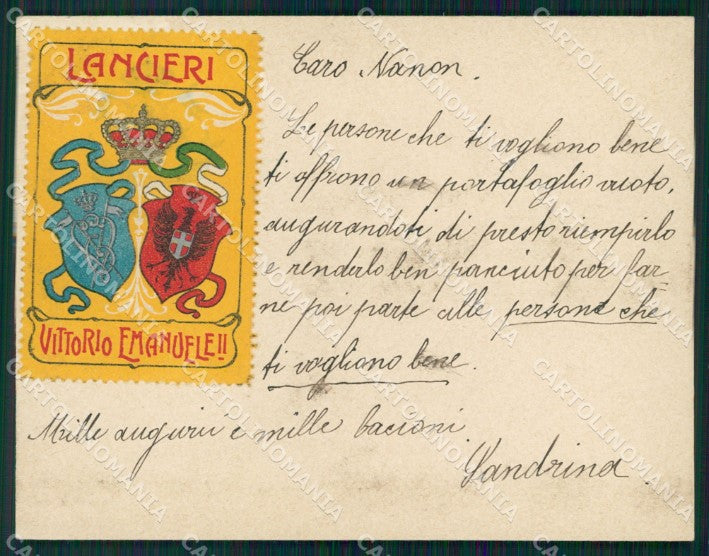 LANCIERI
VITTORIO EMANUELE II
Caro Nanon.
Le persone che ti vogliono bene
ti offrono un portafoglio vuoto,
augurandoti di presto riempirlo
e renderlo ben panciuto per far-
ne poi parte alle persone che
ti vogliono bene.
Mille auguri e mille bacioni
Sandrina.
CARTOLINOMANIA